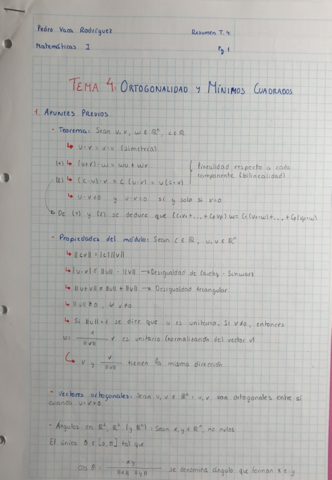 Pedro Vaca Rodríguez
Resumen T.4
Matemáticas I
Pg 1
TEMA 4: ORTOGONALIDAD Y MÍNIMOS CUADRADOS
1. APUNTES PREVIOS.
- Teorema: Sean u, v, w ∈ ℝⁿ, c ∈ ℝ
↳ u·v = v·u (simetría)
(*) ↳ (u+v)·w = wu + wv
linealidad respecto a cada
componente (bilinealidad)
↳ (c·u)·v = c(u·v) = u(c·v)
De (*) y se deduce que
- Propiedades del módulo: Sean c ∈ ℝ, u, v ∈ ℝⁿ
↳ ||cv|| = |c| ||v||
↳ |u·v| ≤ ||u||·||v|| → Desigualdad de Cauchy-Schwarz
↳ ||u+v|| ≤ ||u|| + ||v|| → Desigualdad triangular
↳ Si ||u|| = 1 se dice que u es unitario. Si v≠0, entonces
es unitario (normalización del vector v)
↳ v y v/||v|| tienen la misma dirección
- Vectores ortogonales: Sean u, v ∈ ℝⁿ: u, v, son ortogonales entre sí
cuando u·v=0.
- Ángulos en ℝ², ℝ³ (y ℝⁿ): Sean x, y ∈ ℝⁿ, no nulos
El único θ ∈ [0, π] tal que
cos θ = xy/||x|| ||y|| se denomina ángulo que forman x e y